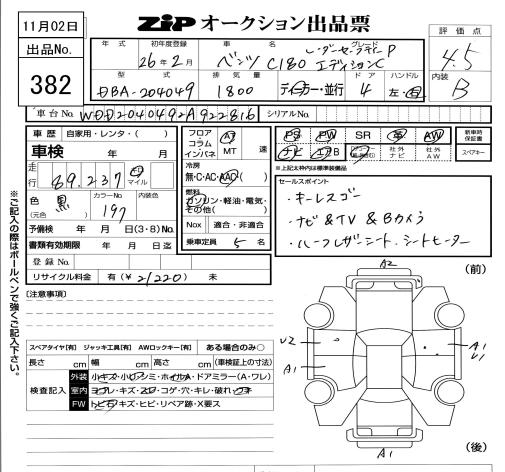 11月02日
ZIP オークション出品票
出品No.
382
年式
初年度登録
26年2月
車名
ベンツ C180
グレード
レーダーセーフティP
エディションC
評価点
4.5
内装
B
型式
DBA-204049
排気量
1800
ディーラー・並行
ドア
4
ハンドル
左・右
車台No.
WDD2040492A922816
シリアルNo.
車歴 自家用・レンタ・( )
車検
走行
89,237
km
マイル
色
黒
(元色)
カラーNo
197
予備検 年 月 日(3・8)No.
書類有効期限 年 月 日迄
登録No.
リサイクル料金 有(¥21220)未
フロア
コラム
インパネ
AT
MT
速
冷房
無・C・AC・AAC
燃料
ガソリン・軽油・電気・
その他( )
Nox 適合・非適合
乗車定員 5 名
PS PW SR 革 AW
ナビ エアB
社外ナビ
社外AW
新車時保証書
スペアキー
※上記太枠内は標準装備品
セールスポイント
・キーレスゴー
・ナビ&TV&Bカメラ
・ハーフレザーシート、シートヒーター
[注意事項]
スペアタイヤ[有] ジャッキ工具[有] AWロックキー[有] ある場合のみ○
長さ cm 幅 cm 高さ cm (車検証上の寸法)
検査記入
外装 小キズ・小凹シミ・ホイルA・ドアミラー(A・ワレ)
室内 ヨゴレ・キズ・スレ・コゲ・穴・キレ・破れ・ウキ
FW トビ石・キズ・ヒビ・リペア跡・X要ス
(前)
A2
U2
A1
A1
U1
A1
(後)
※ご記入の際はボールペンで強くご記入下さい。
会場